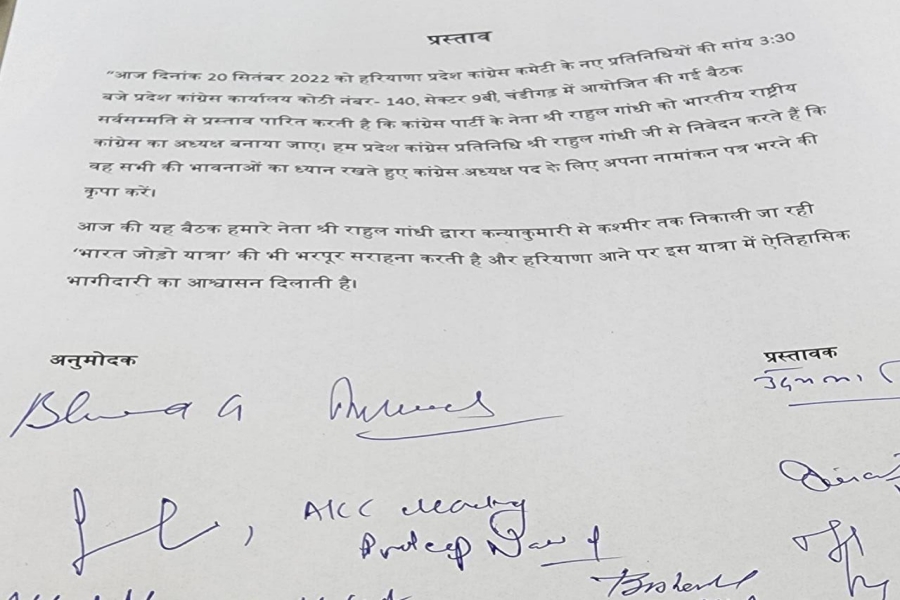 प्रस्ताव
"आज दिनांक 20 सितंबर 2022 को हरियाणा प्रदेश कांग्रेस कमेटी के नए प्रतिनिधियों की सांय 3:30
बजे प्रदेश कांग्रेस कार्यालय कोठी नंबर- 140, सेक्टर 9बी, चंडीगढ़ में आयोजित की गई बैठक
सर्वसम्मति से प्रस्ताव पारित करती है कि कांग्रेस पार्टी के नेता श्री राहुल गांधी को भारतीय राष्ट्रीय
कांग्रेस का अध्यक्ष बनाया जाए। हम प्रदेश कांग्रेस प्रतिनिधि श्री राहुल गांधी जी से निवेदन करते हैं कि
वह सभी की भावनाओं का ध्यान रखते हुए कांग्रेस अध्यक्ष पद के लिए अपना नामांकन पत्र भरने की
कृपा करें।
आज की यह बैठक हमारे नेता श्री राहुल गांधी द्वारा कन्याकुमारी से कश्मीर तक निकाली जा रही
'भारत जोड़ो यात्रा' की भी भरपूर सराहना करती है और हरियाणा आने पर इस यात्रा में ऐतिहासिक
भागीदारी का आश्वासन दिलाती है।
अनुमोदक प्रस्तावक
AICC